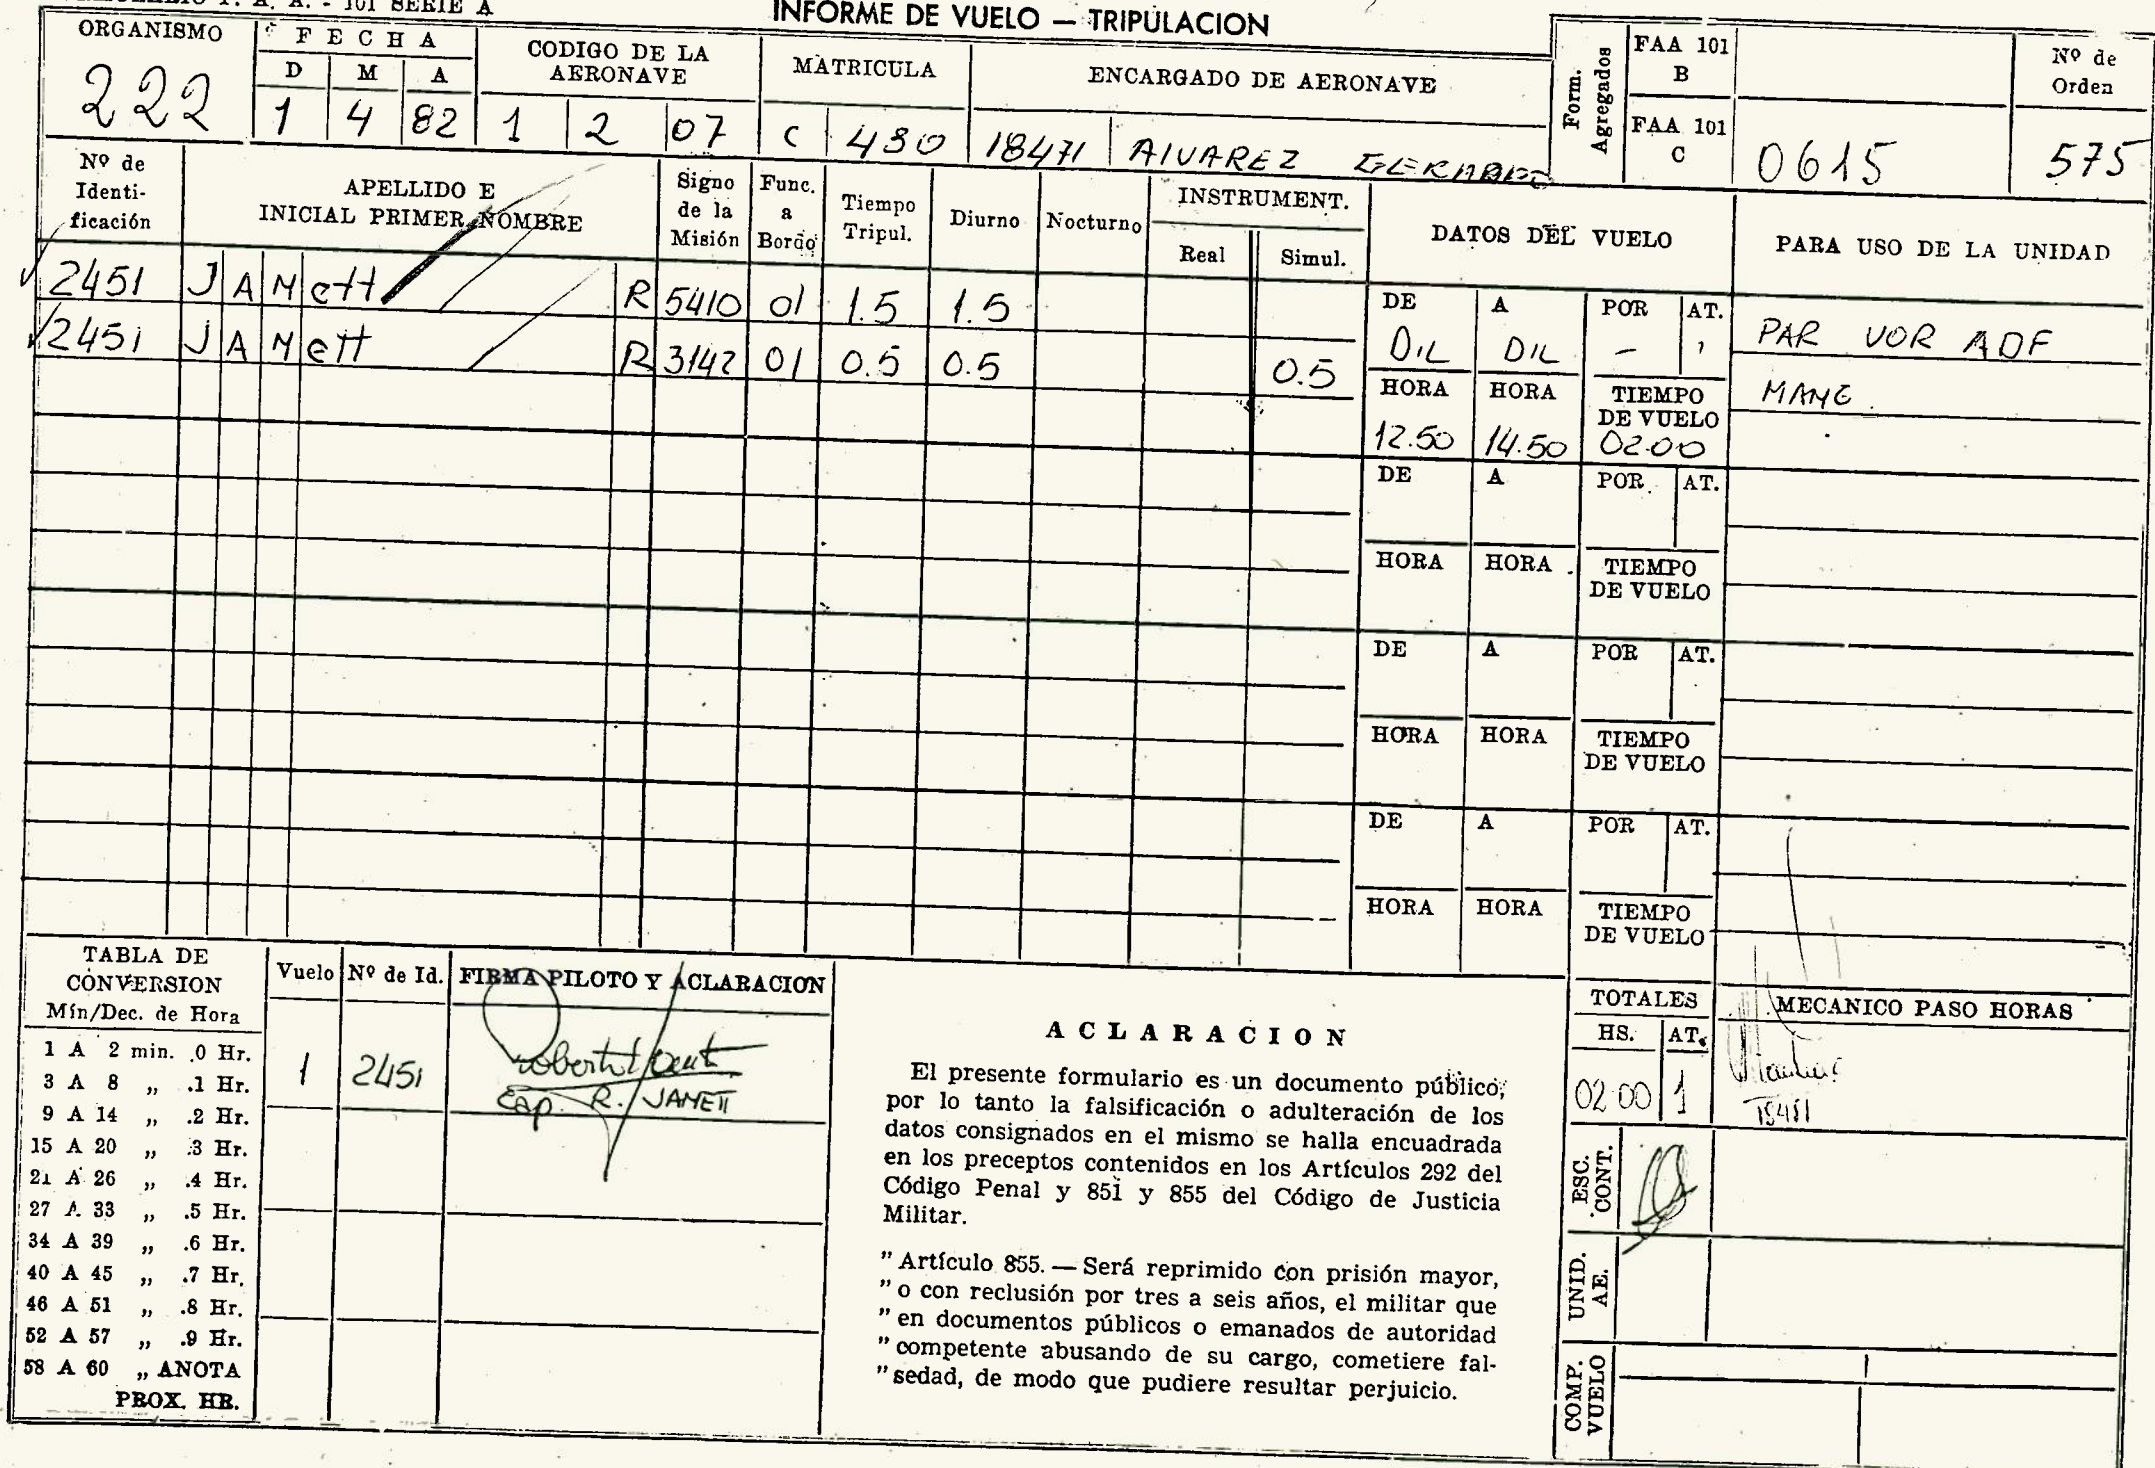 F. A. A. - 101 SERIE A
INFORME DE VUELO — TRIPULACION
ORGANISMO
222
F E C H A
D M A
1 4 82
CODIGO DE LA
AERONAVE
1 2 07
MATRICULA
C 430
ENCARGADO DE AERONAVE
18471 ALVAREZ
Form.
Agregados
FAA 101
B
FAA 101
C
0615
Nº de
Orden
575
Nº de
Identi-
ficación
APELLIDO E
INICIAL PRIMER NOMBRE
Signo
de la
Misión
Func.
a
Bordo
Tiempo
Tripul.
Diurno
Nocturno
INSTRUMENT.
Real Simul.
DATOS DEL VUELO
PARA USO DE LA UNIDAD
2451 JANett R 5410 01 1.5 1.5
2451 JANett R 3142 01 0.5 0.5 0.5
DE A POR AT.
DIL DIL – 1
HORA HORA TIEMPO
DE VUELO
12.50 14.50 02.00
PAR VOR ADF
DE A POR AT.
HORA HORA TIEMPO
DE VUELO
DE A POR AT.
HORA HORA TIEMPO
DE VUELO
DE A POR AT.
HORA HORA TIEMPO
DE VUELO
TABLA DE
CONVERSION
Mín/Dec. de Hora
1 A 2 min. .0 Hr.
3 A 8 „ .1 Hr.
9 A 14 „ .2 Hr.
15 A 20 „ .3 Hr.
21 A 26 „ .4 Hr.
27 A 33 „ .5 Hr.
34 A 39 „ .6 Hr.
40 A 45 „ .7 Hr.
46 A 51 „ .8 Hr.
52 A 57 „ .9 Hr.
58 A 60 „ ANOTA
PROX. HR.
Vuelo Nº de Id. FIRMA PILOTO Y ACLARACION
1 2451
Cap. R. JANETT
A C L A R A C I O N
El presente formulario es un documento público;
por lo tanto la falsificación o adulteración de los
datos consignados en el mismo se halla encuadrada
en los preceptos contenidos en los Artículos 292 del
Código Penal y 851 y 855 del Código de Justicia
Militar.
" Artículo 855. — Será reprimido con prisión mayor,
" o con reclusión por tres a seis años, el militar que
" en documentos públicos o emanados de autoridad
" competente abusando de su cargo, cometiere fal-
" sedad, de modo que pudiere resultar perjuicio.
TOTALES
HS. AT.
02.00 1
MECANICO PASO HORAS
ESC.
CONT.
UNID.
AE.
COMP.
VUELO